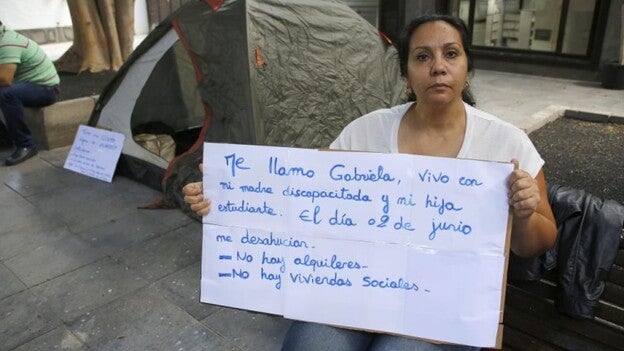 Me llamo Gabriela, vivo con
mi madre discapacitada y mi hija
estudiante. El día 02 de junio
me desahucian-
- No hay alquileres-
- No hay viviendas Sociales-